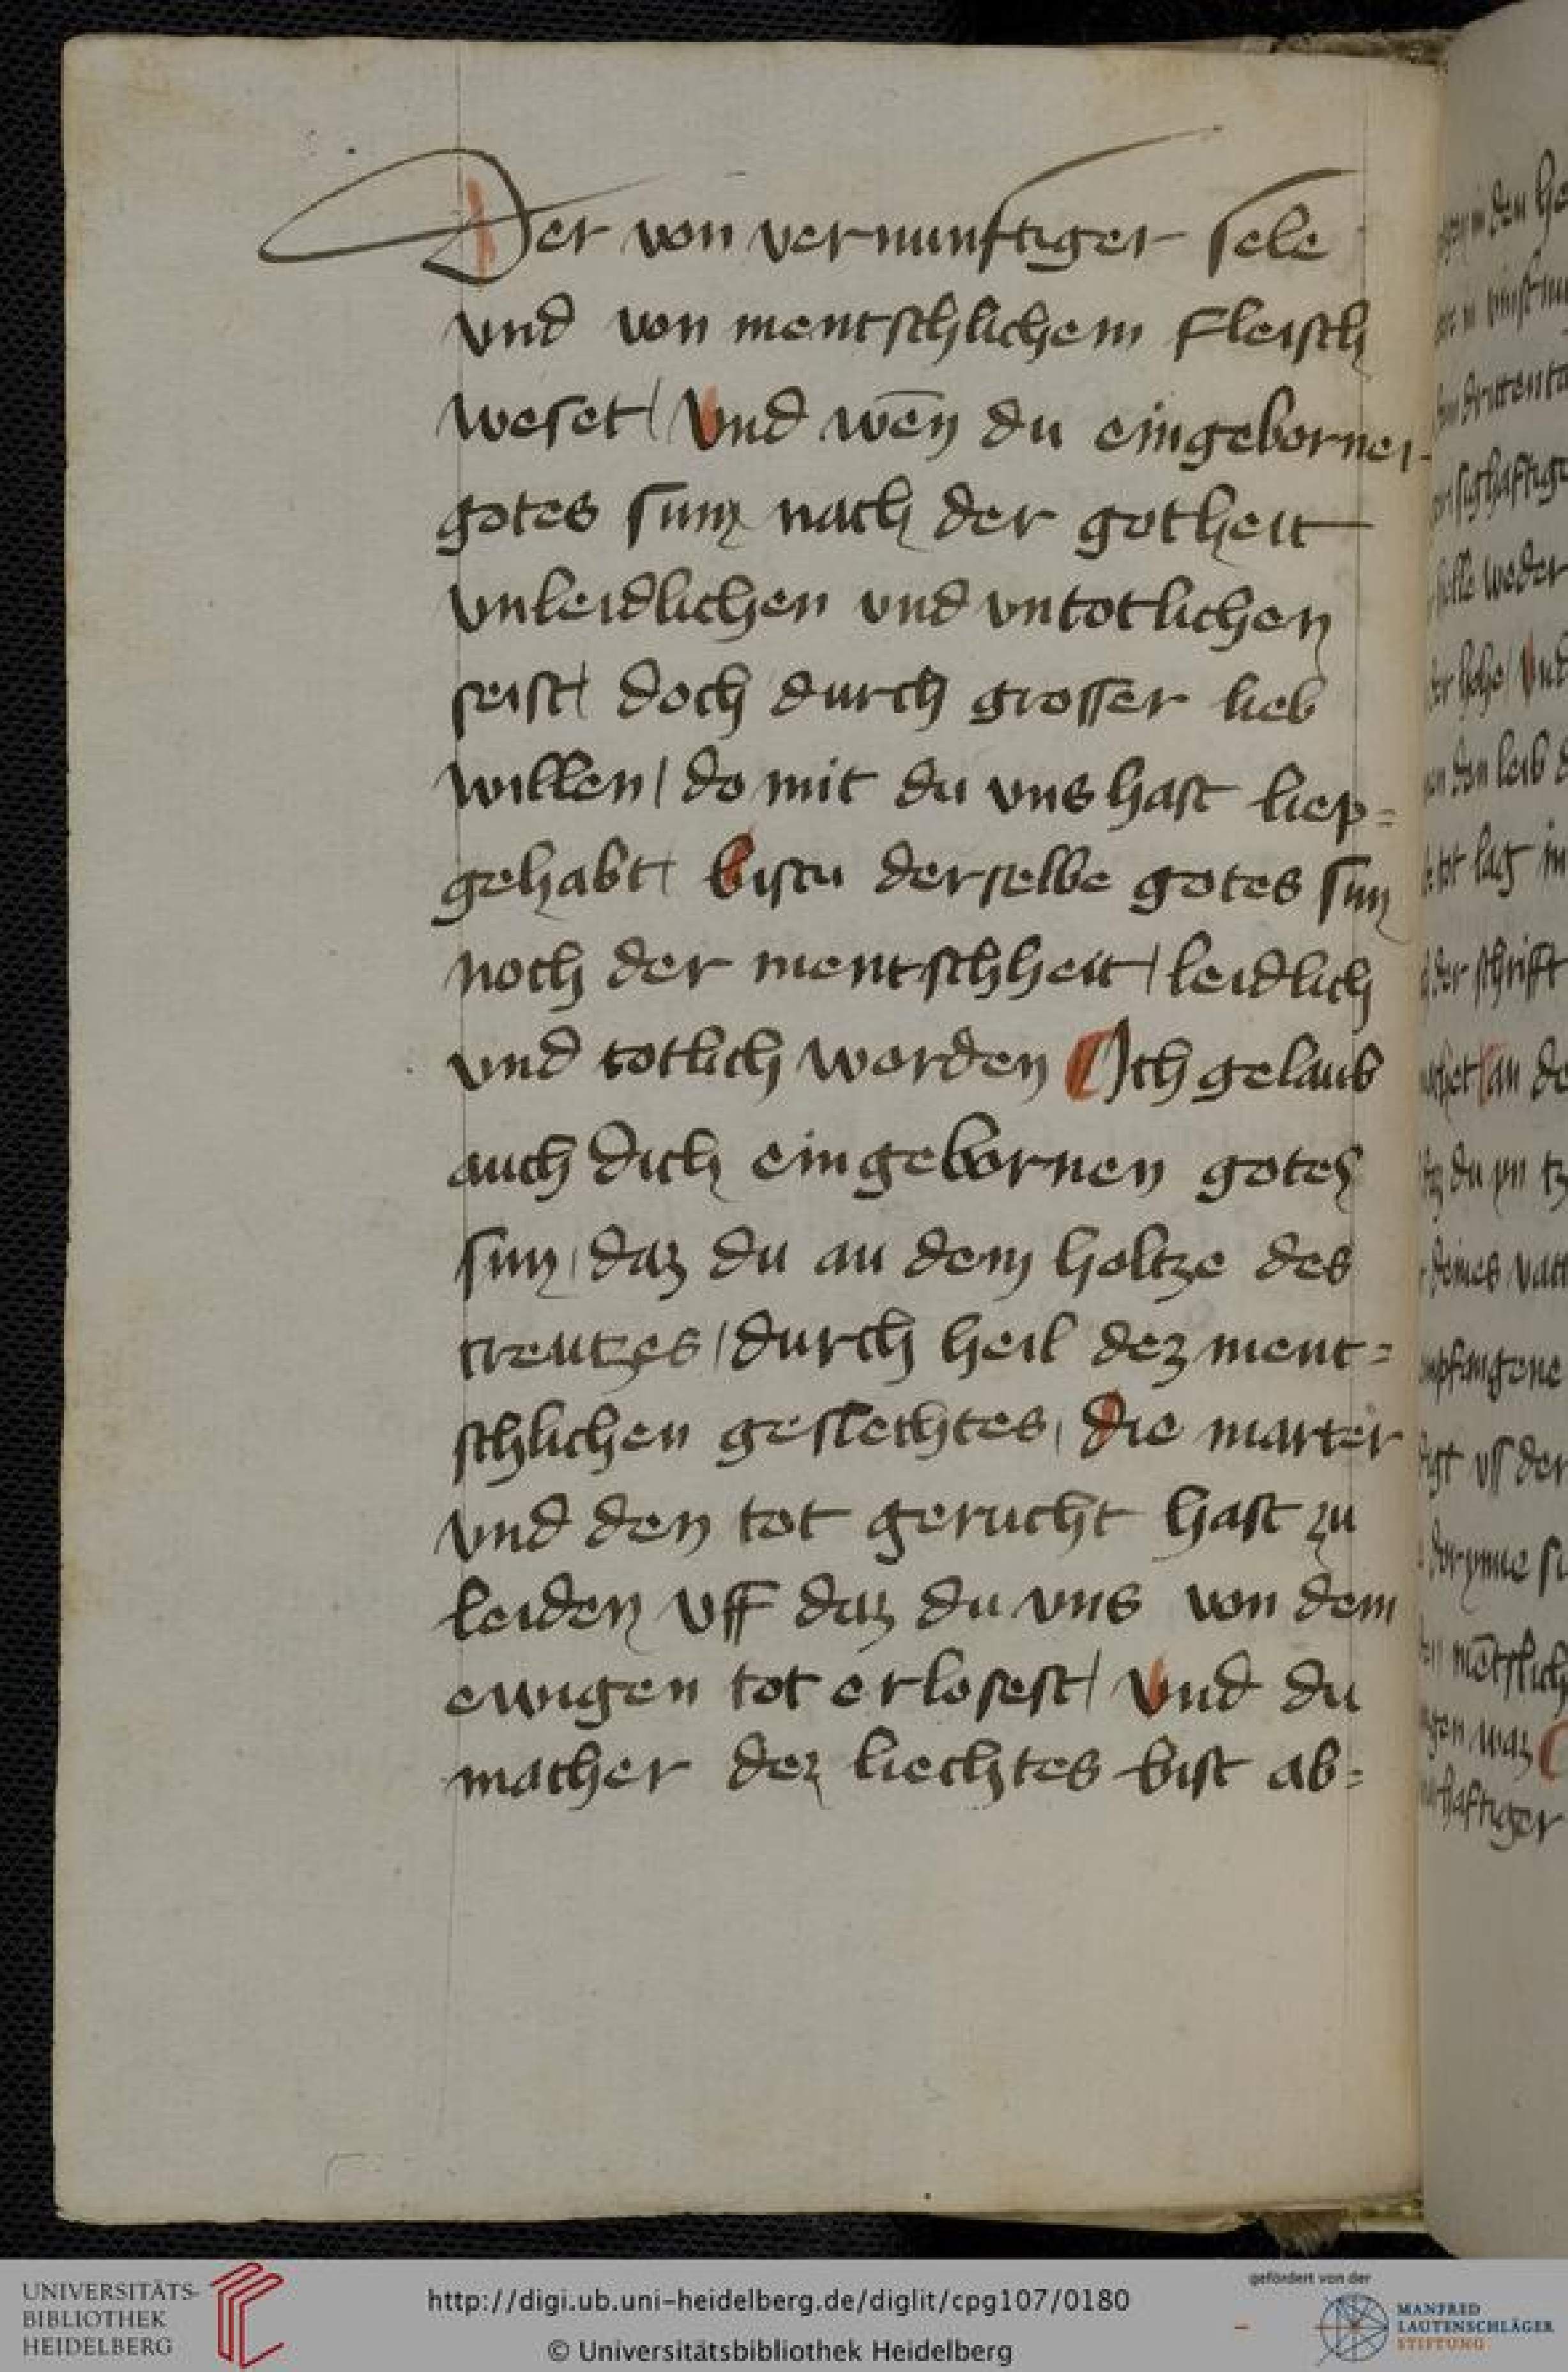 Der von vernunftiger sele
vnd von mentschlichem fleisch
weset / Vnd wēn du eingeborner
gotes sun nach der gotheit
vnleidlichen vnd vntotlichen
seist / doch durch grosser lieb
willen / do mit du vns hast liep=
gehabt / bistu derselbe gotes sun
noch der mentschheit / leidlich
vnd totlich worden Ich gelaub
auch dich eingebornen gotes
sun / daz du an dem holtze des
creutzes / durch heil dez ment=
schlichen geslechtes / die marter
vnd den tot gerucht hast zu
leiden vff daz du vns von dem
ewigen tot erlosest / vnd du
macher dez liechtes bist ab=
UNIVERSITÄTS-
BIBLIOTHEK
HEIDELBERG
http://digi.ub.uni-heidelberg.de/diglit/cpg107/0180
© Universitätsbibliothek Heidelberg
gefördert von der
MANFRED
LAUTENSCHLÄGER
STIFTUNG